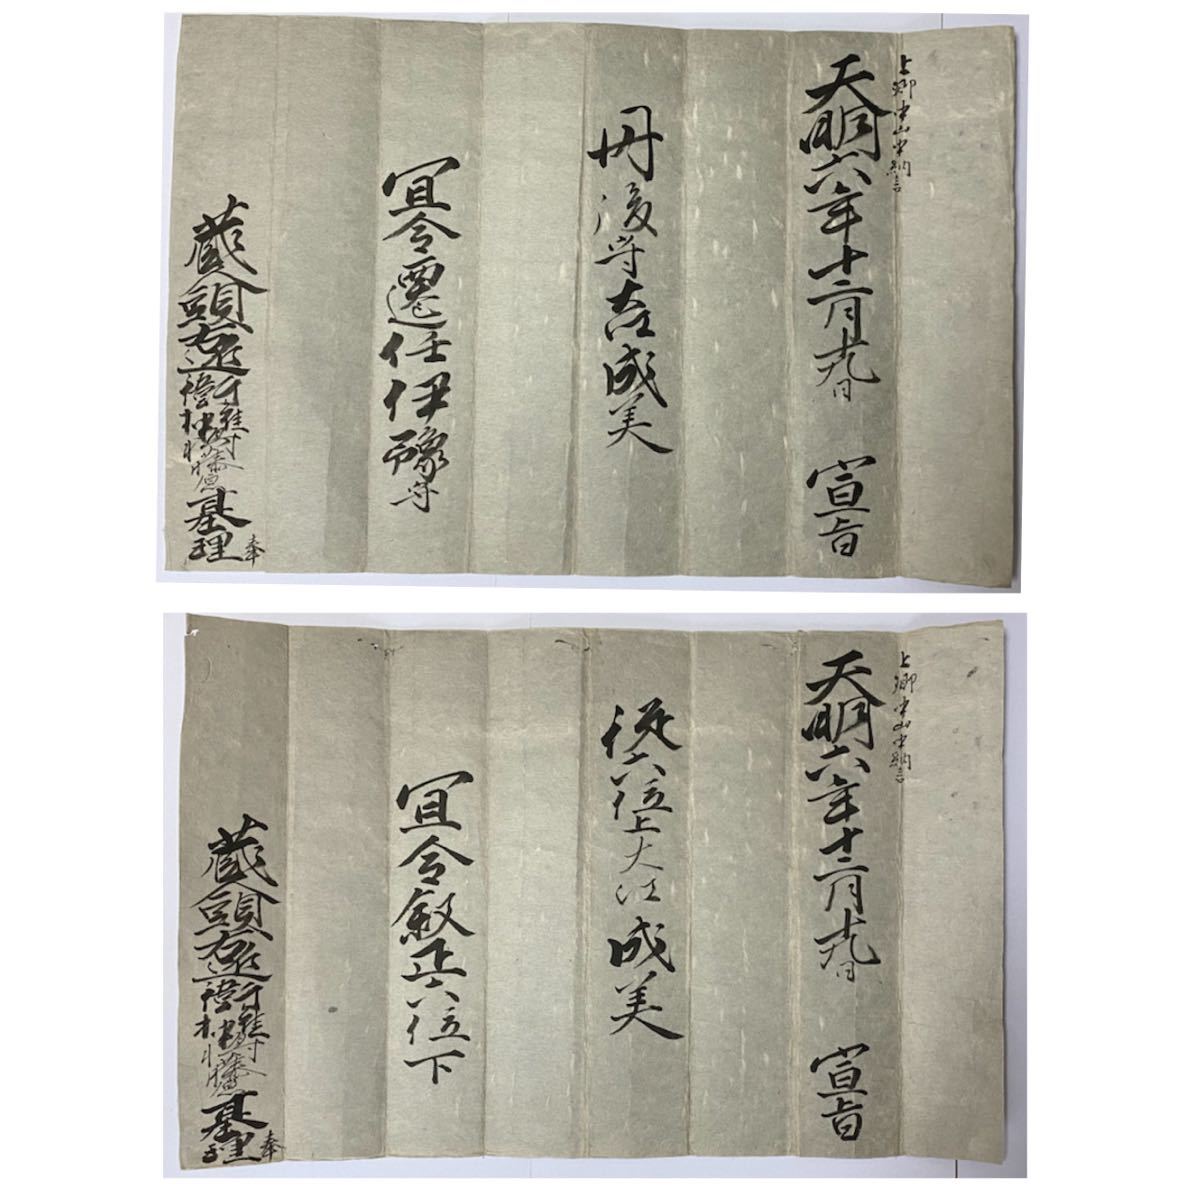 上卿 中山中納言
天明六年十二月十九日 宣旨
丹後守大江成美
宜令遷任伊豫守
蔵人頭右近衛権中将藤原基理 奉
上卿 中山中納言
天明六年十二月十九日 宣旨
従六位上大江成美
宜令叙正六位下
蔵人頭右近衛権中将藤原基理 奉